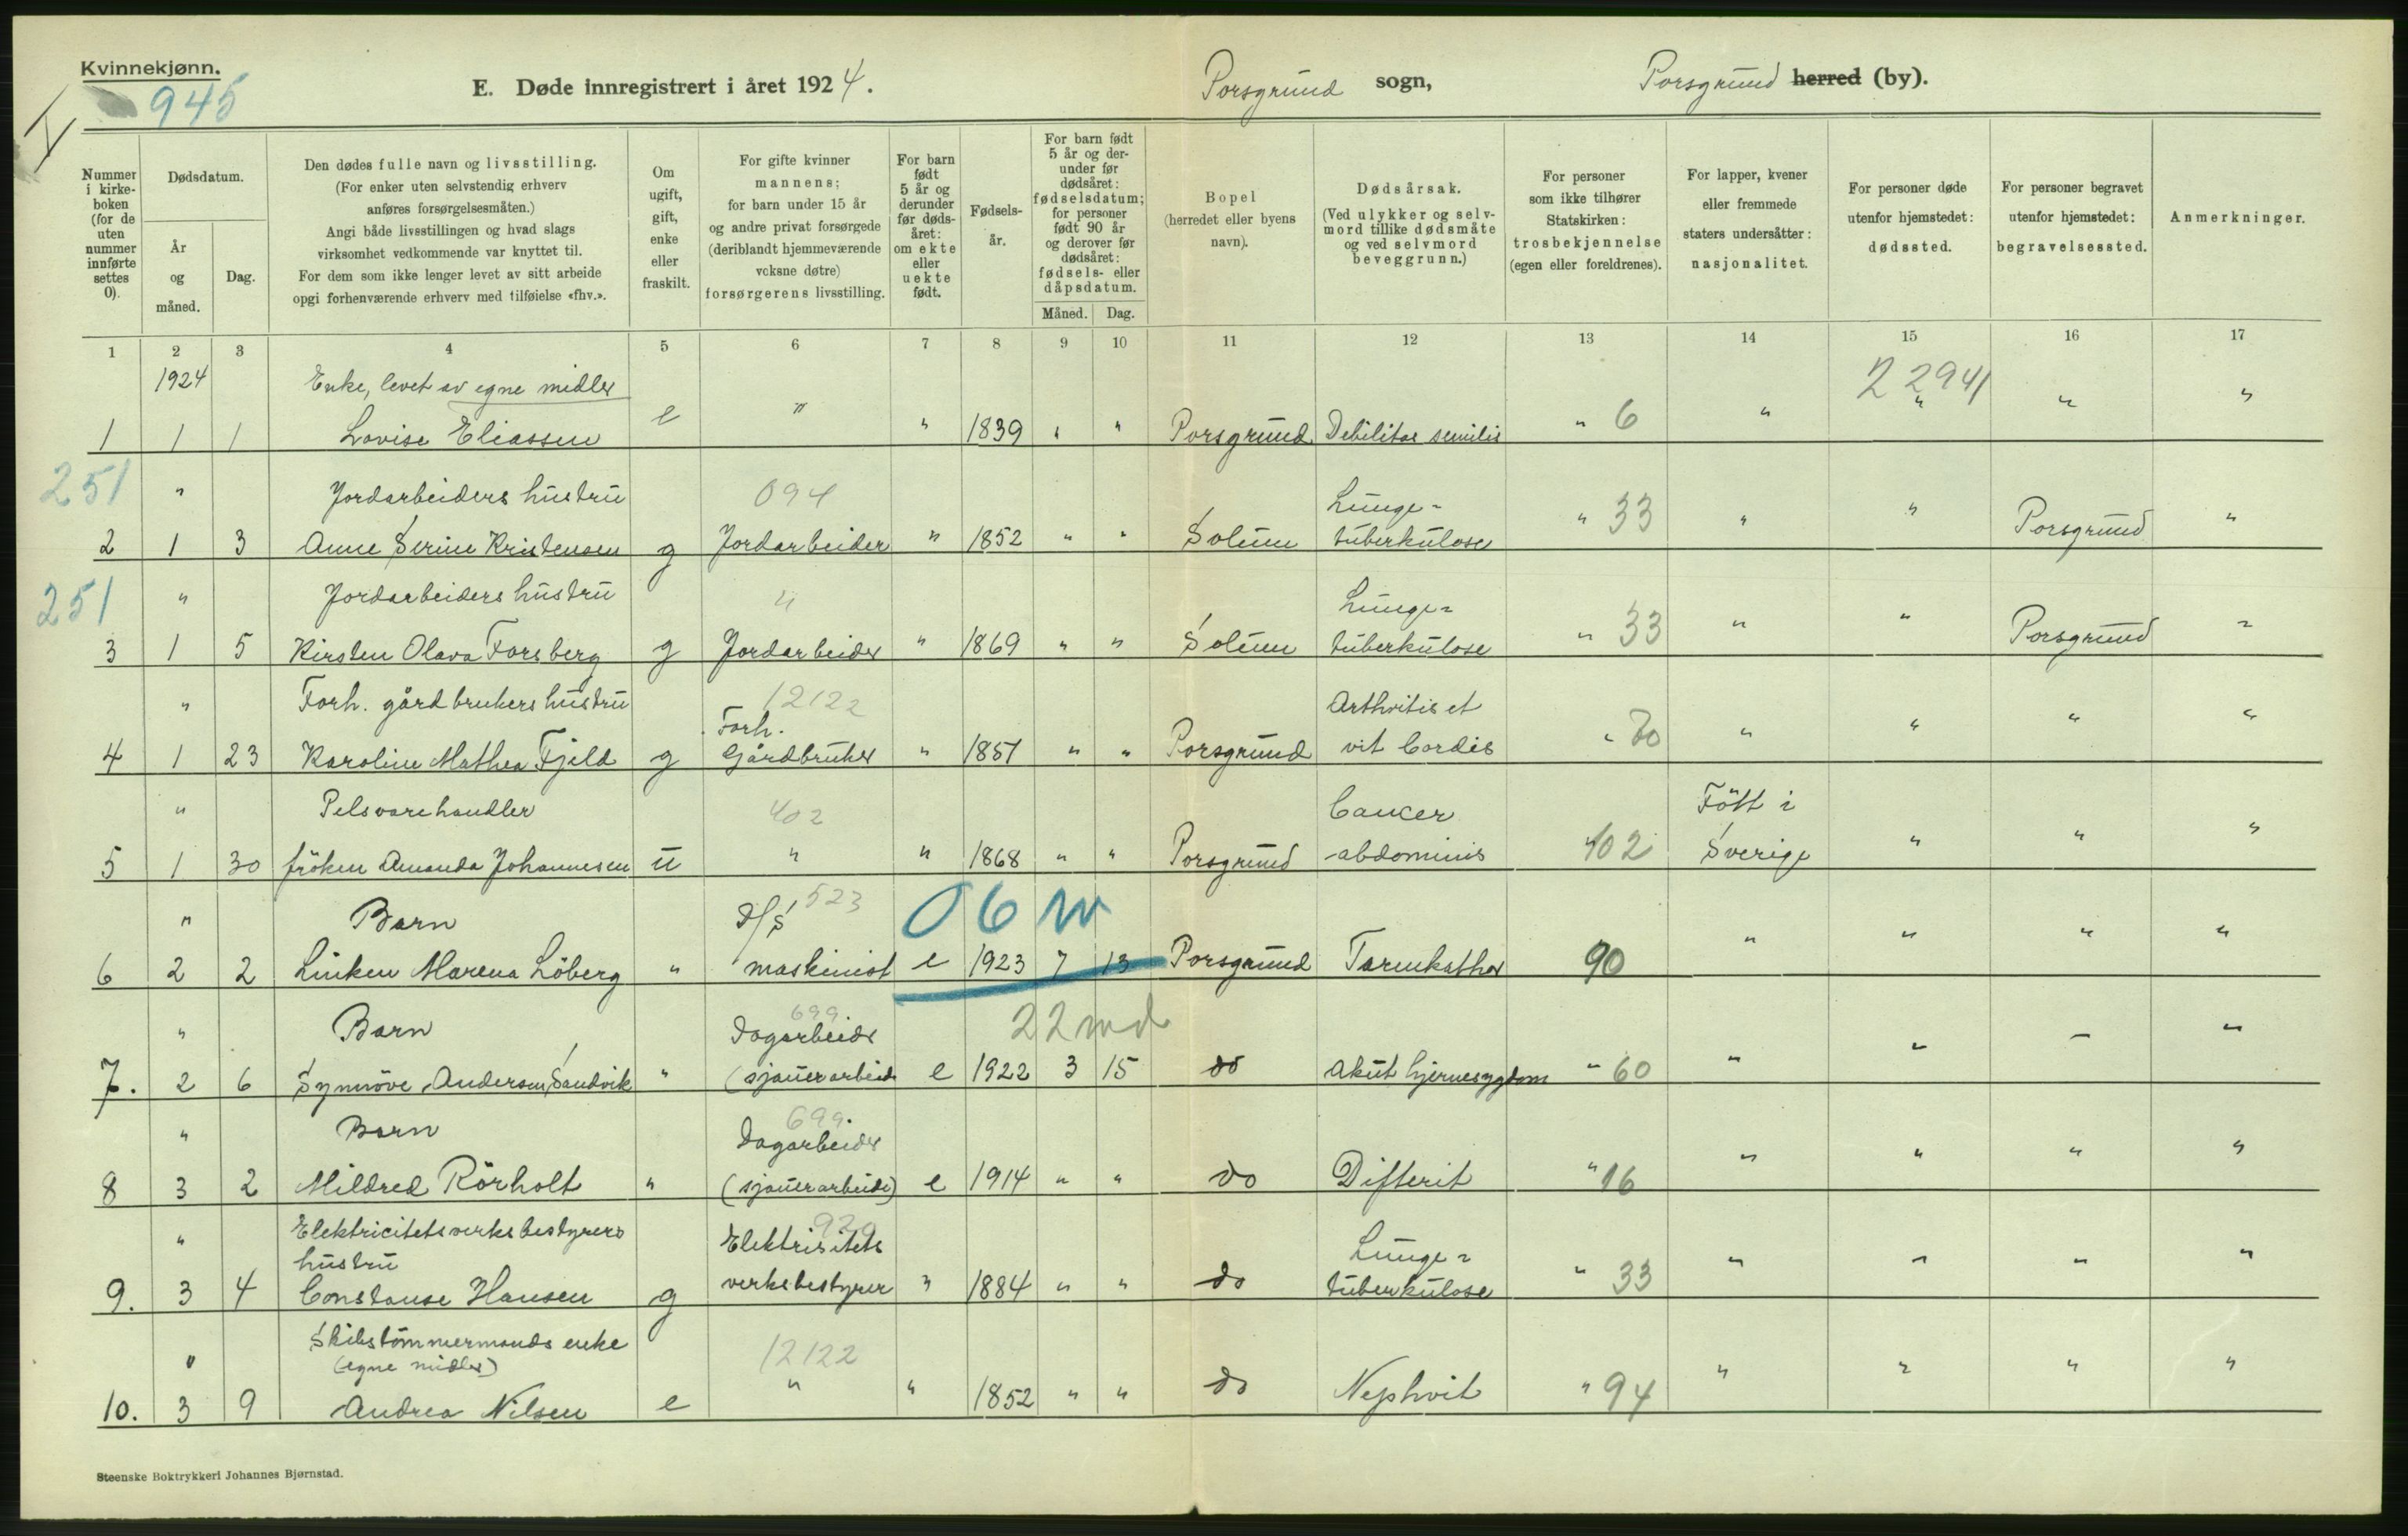 Kvinnekjønn.
945
E. Døde innregistrert i året 1924.
Porsgrund sogn,
Porsgrund herred (by).
Nummer i kirkeboken (for de uten nummer innførte settes 0).
Dødsdatum.
År og måned.
Dag.
Den dødes fulle navn og livsstilling.
(For enker uten selvstendig erhverv
anføres forsørgelsesmåten.)
Angi både livsstillingen og hvad slags
virksomhet vedkommende var knyttet til.
For dem som ikke lenger levet av sitt arbeide
opgi forhenværende erhverv med tilføielse «fhv.».
Om ugift, gift, enke eller fraskilt.
For gifte kvinner
mannens;
for barn under 15 år
og andre privat forsørgede
(deriblandt hjemmeværende
voksne døtre)
forsørgerens livsstilling.
For barn født 5 år og derunder før dødsåret: om ekte eller uekte født.
Fødselsår.
For barn født 5 år og derunder før dødsåret: fødselsdatum; for personer født 90 år og derover før dødsåret: fødsels- eller dåpsdatum.
Måned. Dag.
Bopel
(herredet eller byens
navn).
Dødsårsak.
(Ved ulykker og selvmord tillike dødsmåte og ved selvmord beveggrunn.)
For personer
som ikke tilhører
Statskirken:
trosbekjennelse
(egen eller foreldrenes).
For lapper, kvener
eller fremmede
staters undersåtter:
nasjonalitet.
For personer døde
utenfor hjemstedet:
dødssted.
For personer begravet
utenfor hjemstedet:
begravelsessted.
Anmerkninger.
1 2 3 4 5 6 7 8 9 10 11 12 13 14 15 16 17
1924 Enke, levet av egne midler 2 2941
1 1 1 Lovise Eliassen e " " 1839 " " Porsgrund Debilitas senilis " 6 " " " "
251 " Jordarbeiders hustru 094 Lunge-
2 1 3 Anne Serine Kristensen g Jordarbeider " 1852 " " Solum tuberkulose " 33 " " Porsgrund "
251 " Jordarbeiders hustru " Lunge-
3 1 5 Kirsten Olava Forsberg g Jordarbeider " 1869 " " Solum tuberkulose " 33 " " Porsgrund "
" Forh. gårdbrukers hustru 12122 Forh. Arthritis et
4 1 23 Karoline Mathea Fjeld g Gårdbruker " 1851 " " Porsgrund vit Cordis " " " " "
" Pelsvarehandler 402 Cancer Fött i
5 1 30 fröken Amanda Johannesen u " " 1868 " " Porsgrund abdominis 402 Sverige " " "
" Barn D/S 523 06 m
6 2 2 Linken Marena Löberg " maskinist e 1923 7 13 Porsgrund Tarmkathar 90 " " " "
" Barn 699 Dagarbeider 22 md
7. 2 6 Synnöve Andersen Sandvik " (sjauerarbeide e 1922 3 15 do Akut hjernesygdom " 60 " " " "
" Barn 699 Dagarbeider
8 3 2 Mildred Rörholt " (sjauerarbeide) e 1914 " " do Difterit " 16 " " " "
" Elektricitetsverksbestyrers 929 Elektrisitets Lunge-
hustru
9. 3 4 Constanse Hansen g verksbestyrer " 1884 " " do tuberkulose " 33 " " " "
" Skibstömmermands enke
(egne midler) 12122
10. 3 9 Andrea Nilsen e " " 1852 " " do Nephrit " 94 " " " "
Steenske Boktrykkeri Johannes Bjørnstad.